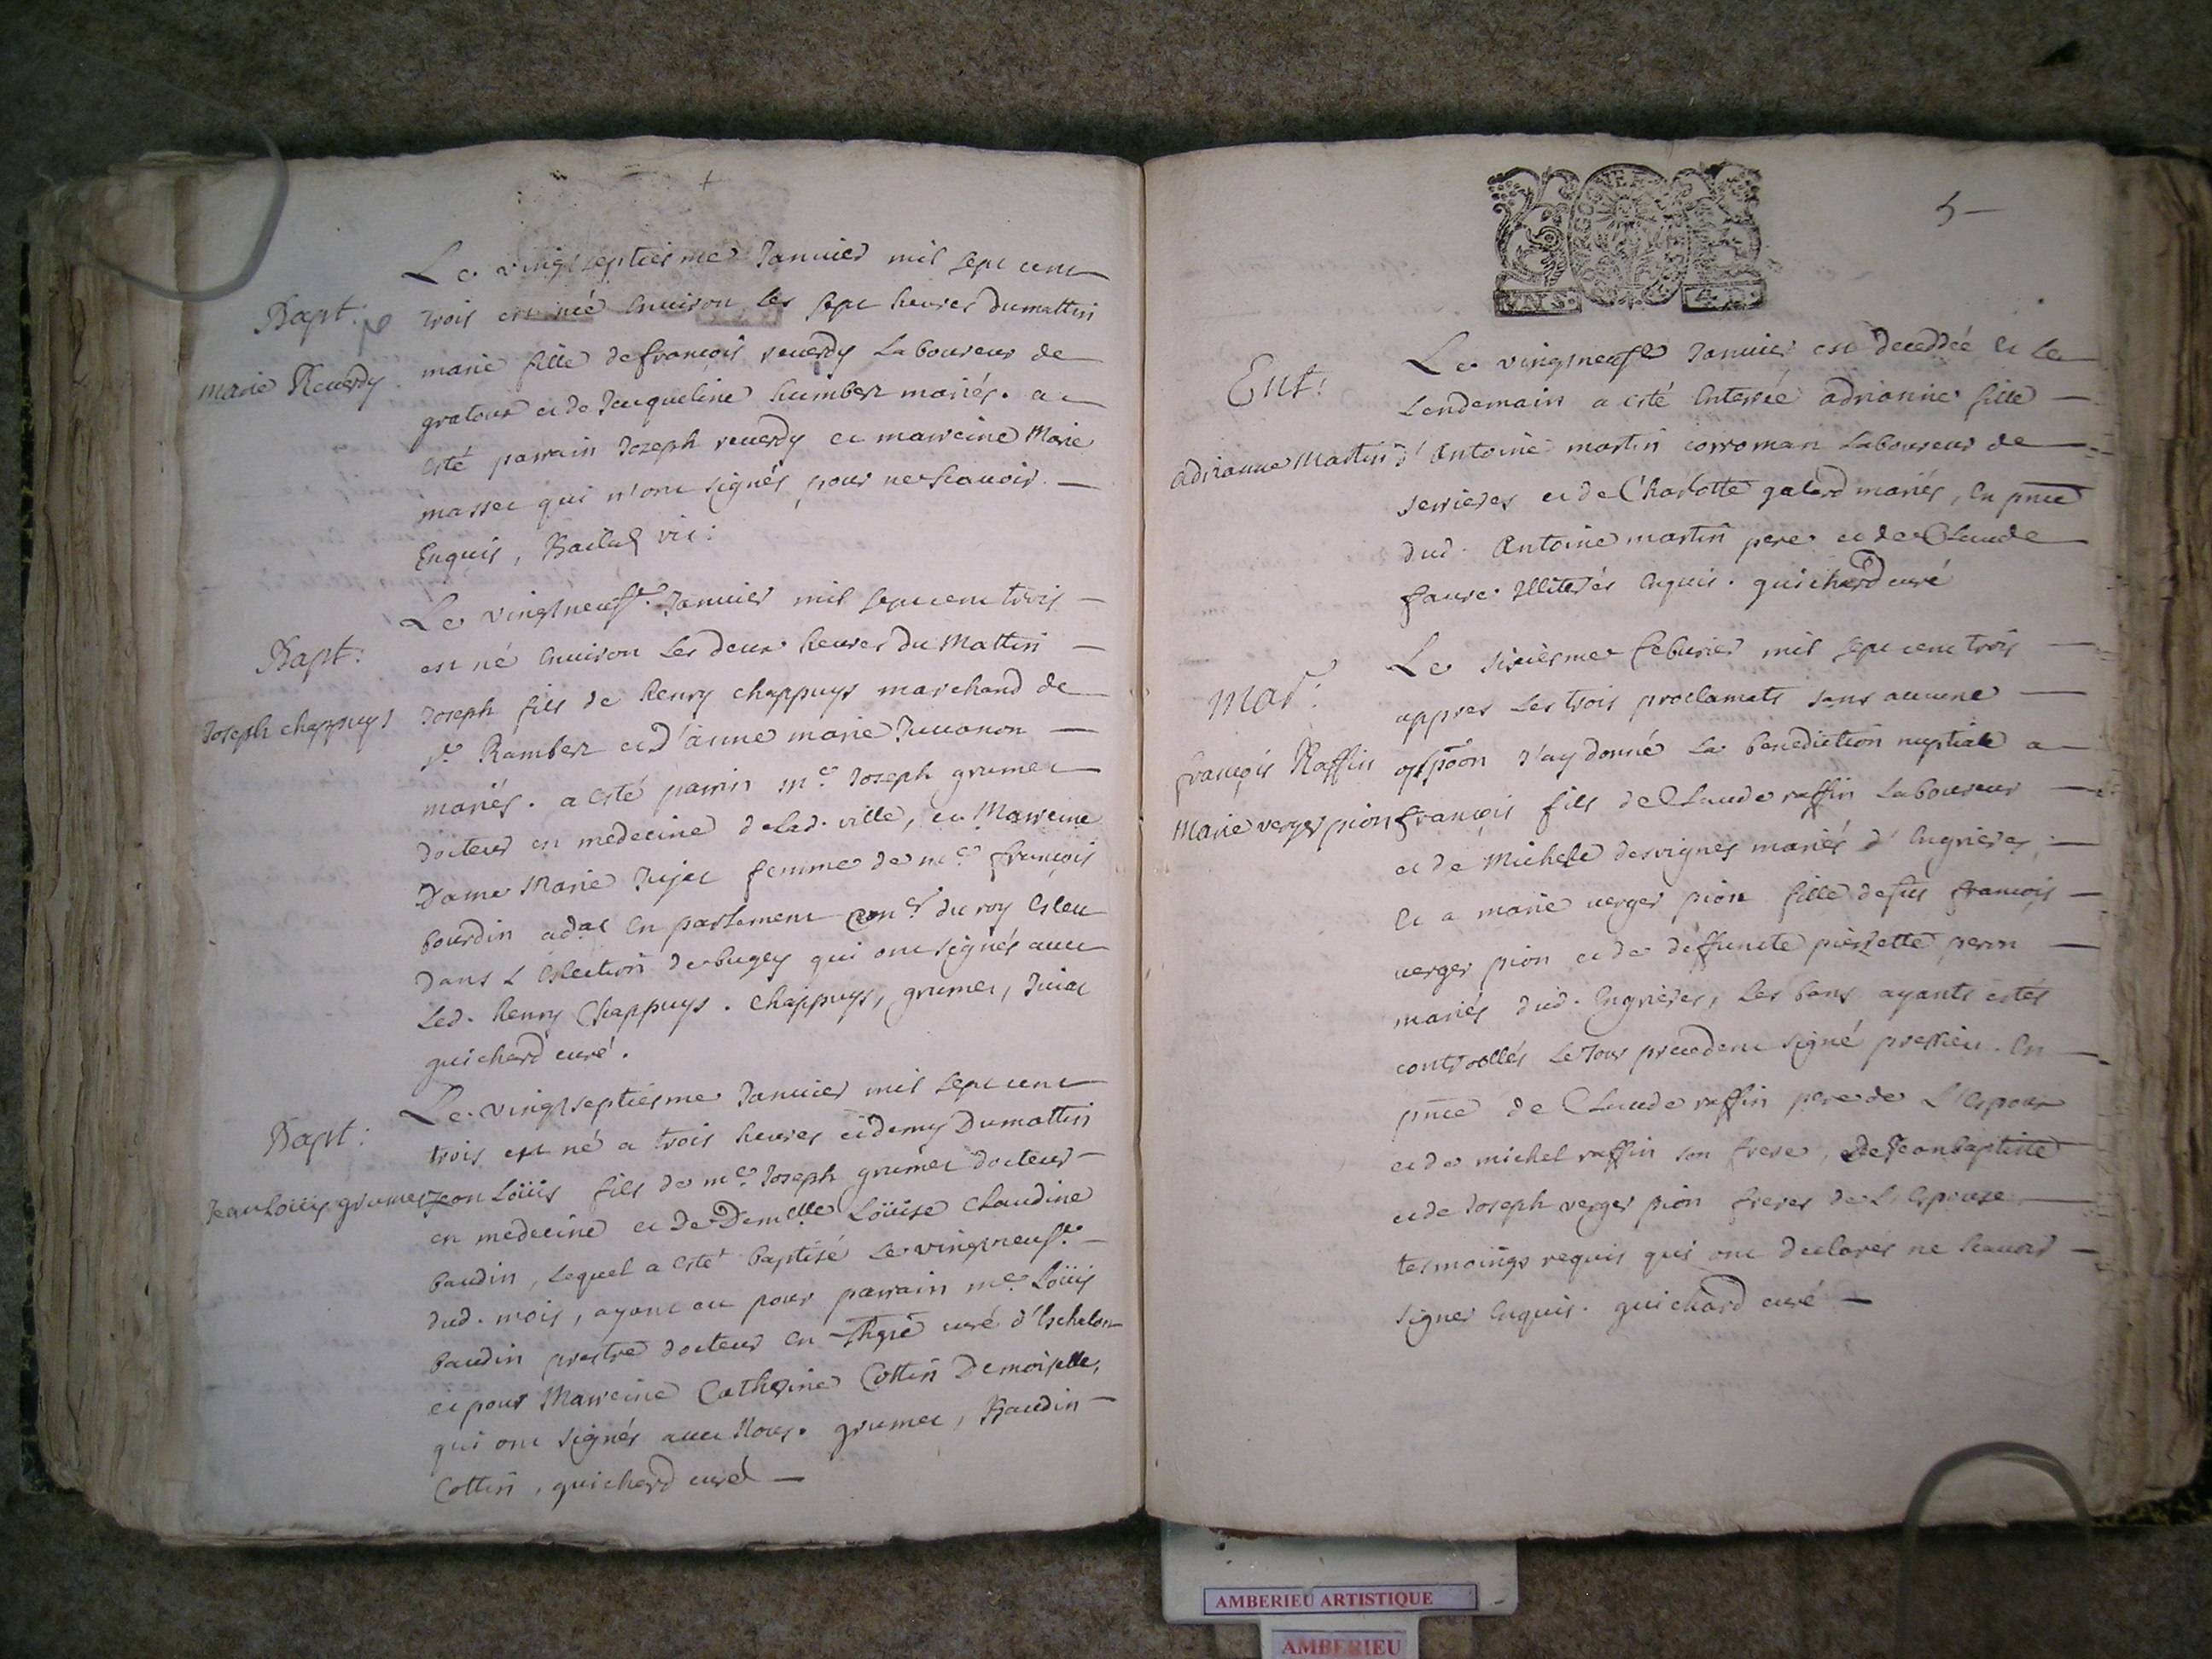 Bapt:
marie Reuerdy
Le vingtseptiesme Januier mil sept cent
trois est né enuiron les sept heures du mattin
marie fille de françois reuerdy laboureur de
gratoux et de Jacqueline humbert mariés. a
esté parrain Jozeph reuerdy et marreine Marie
masset qui n'ont signés pour ne scauoir
Enquis, vic:
Bapt:
Joseph chappuys
Le vingtneuf.e Januier mil sept cent trois
est né enuiron les deux heures du Mattin
Joseph fils de henry chappuys marchand de
St. Rambert et d'anne marie Juuanon
mariés. a esté parrin m.e Joseph grumet
docteur en medecine de lad. ville, et Marreine
Dame Marie Jujat femme de m.e françois
bourdin adat en parlement con.er du roy esleu
dans l'eslection de bugey qui ont signés auec
led. henry Chappuys. Chappuys, grumet, Juiat
guichard curé.
Bapt:
Jean Loüis grumet
Le vingtseptiesme Januier mil sept cent
trois est né a trois heures et demy du mattin
Jean Loüis fils de m.e Joseph grumet docteur
en medecine et de Demlle Loüise Claudine
baudin, lequel a esté baptisé le vingtneuf.e
dud. mois, ayant eu pour parrain m.e Loüis
baudin prestre docteur en curé d'Eschelon
et pour Marreine Catherine Cottin Demoiselle,
qui ont signés auec Nous. grumet, Baudin
Cottin, guichard curé
5
GENER
4 D.
Ent:
adrianne Martin
Le vingtneuf.e Januier est deceddée et le
Lendemain a esté enterrée adrianne fille
d'Antoine martin corroman laboureur de
serrieres et de Charlotte galard mariés, en pnce
dud. Antoine martin pere et de Claude
faure illiterés enquis. guichard curé
Mar:
françois Raffin
Marie verger pion
Le sixiesme feburier mil sept cent trois
appres les trois proclamats sans aucune
oppõon J'ay donné la benediction nuptiale a
françois fils de Claude raffin laboureur
et de Michele desvignes mariés d'engrieres
et a marie uerger pion fille de fus françois
uerger pion et de deffuncte pierrette peron
mariés dud. Engrieres, les bans ayants estés
controollés le Jour precedent signé pressieu. en
pnce de Claude raffin pere de l'espoux
et de michel raffin son frere, de Jeanbaptiste
et de Joseph verger pion freres de l'espouse
tesmoings requis qui ont declarés ne scauoir
signer enquis. guichard curé
AMBERIEU ARTISTIQUE
AMBERIEU